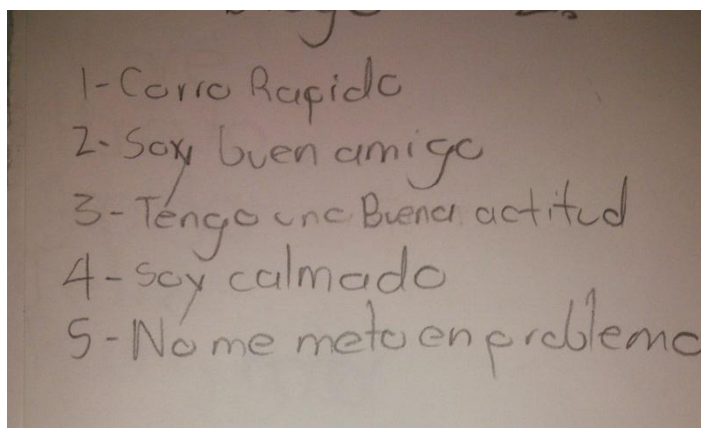 1-Corro Rapido
2-Soy buen amigo
3-Tengo una Buena actitud
4-Soy calmado
5-No me meto en problema